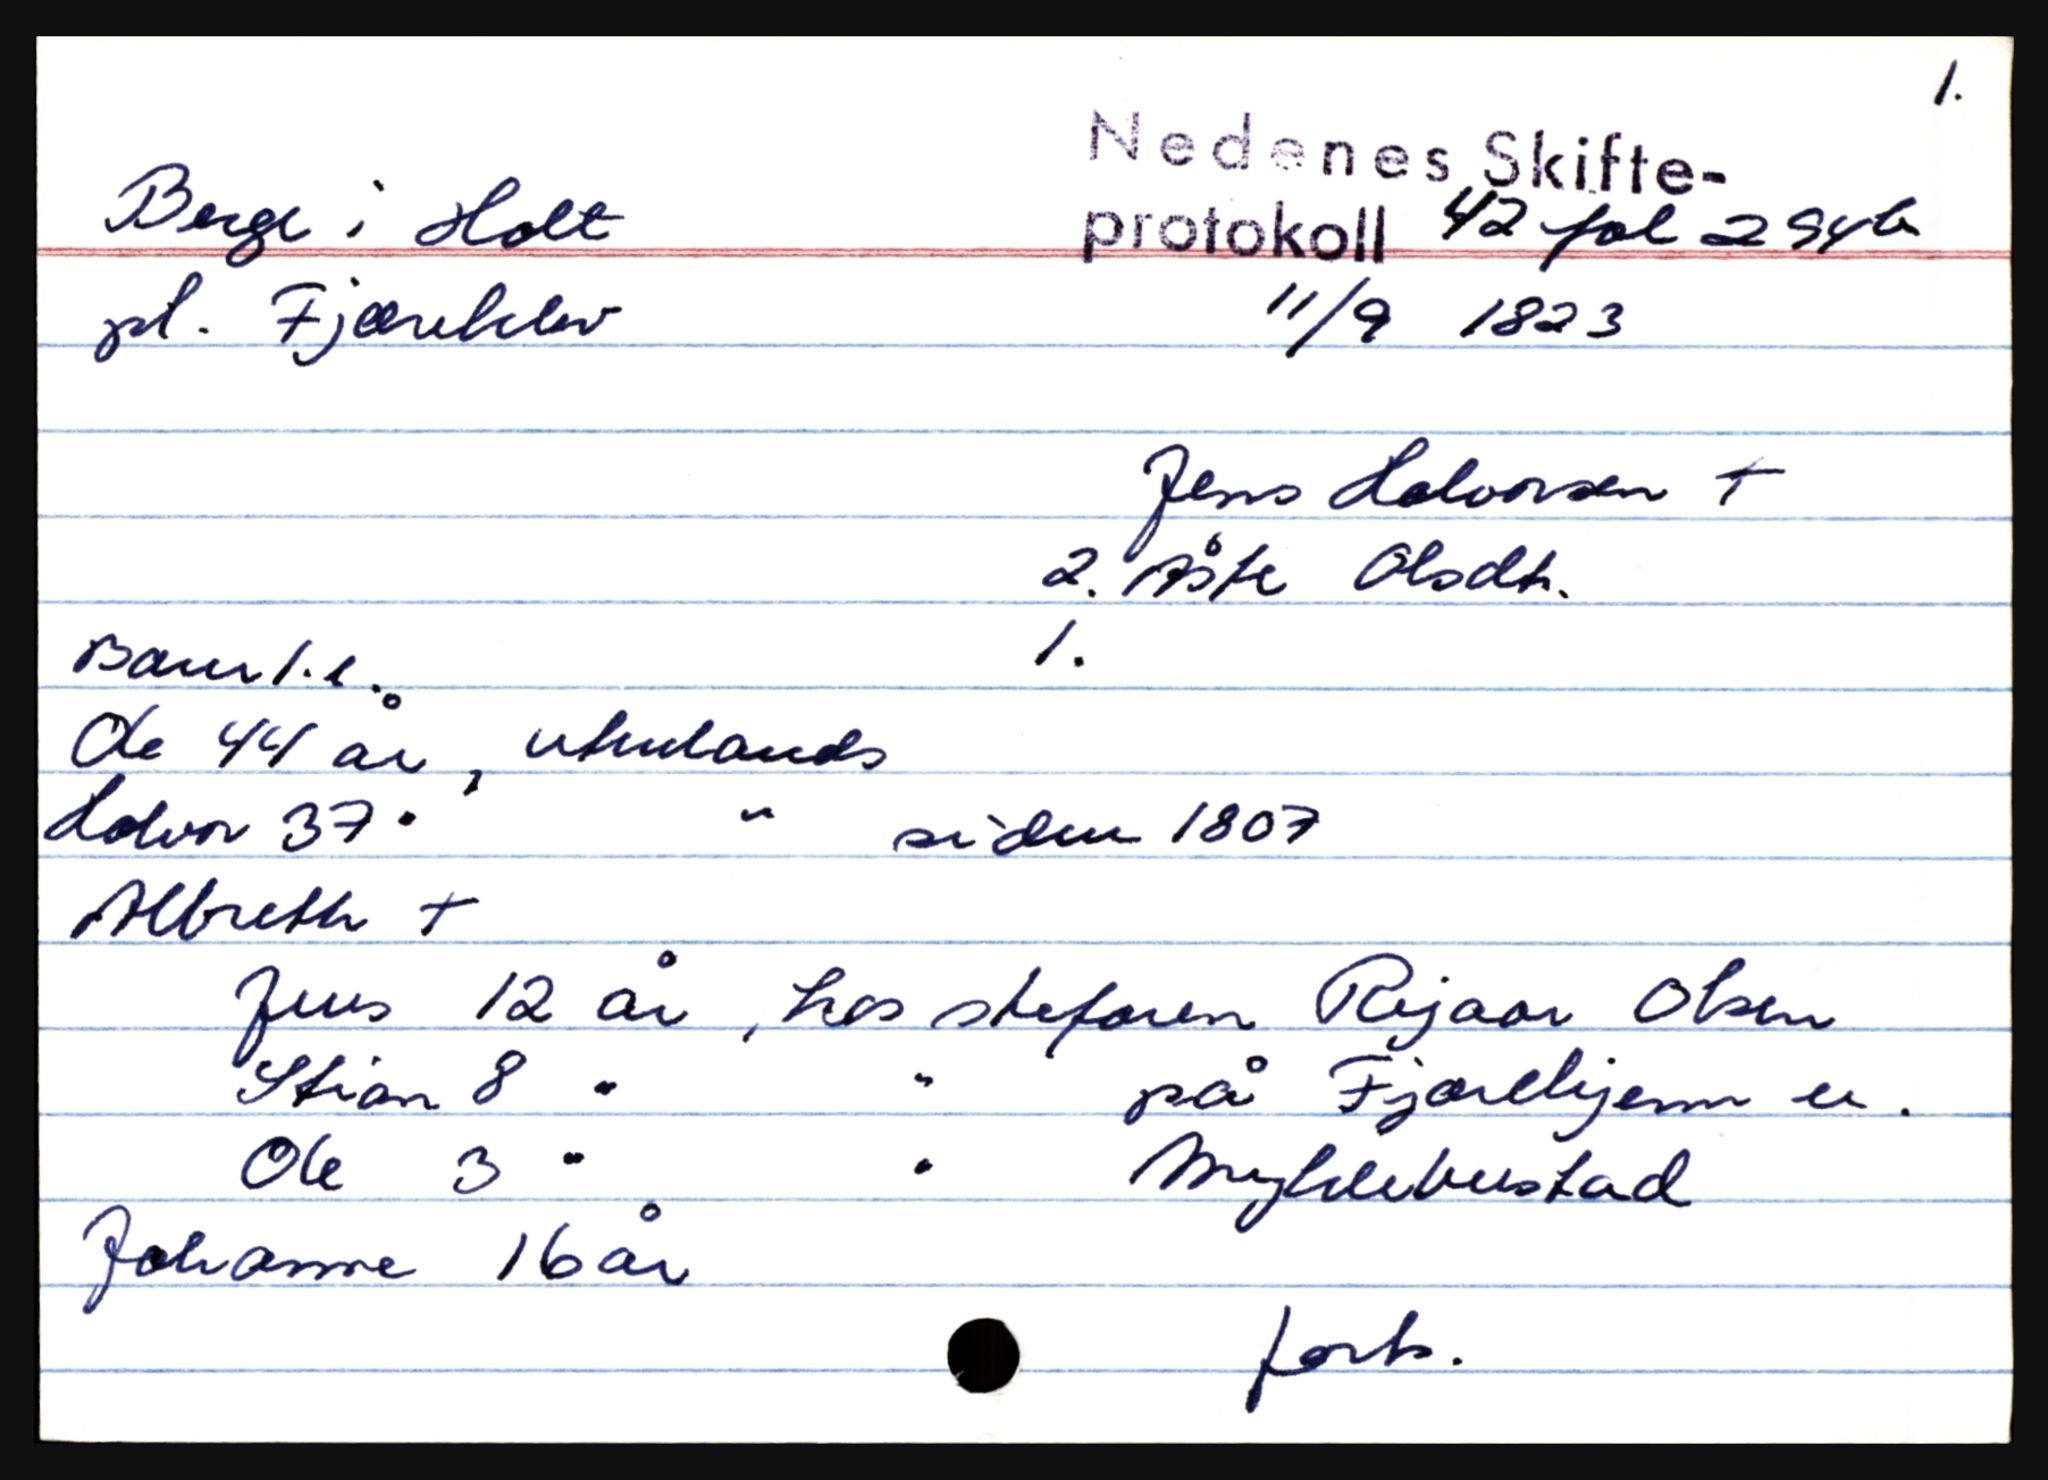 1.
Nedenes Skifte-
Berge i Holt protokoll 42 fol 294b
pl. Fjæreklev 11/9 1823
Jens Halvorsen †
2. Åste Olsdtr.
Barn 1.e. 1.
Ole 44 år, utenlands
Halvor 37 " " siden 1807
Albreth †
Jens 12 år, hos stefaren Rejaar Olsen
Stian 8 " " på Fjærekjenn u.
Ole 3 " " Myklebustad
Johanne 16 år
forts.